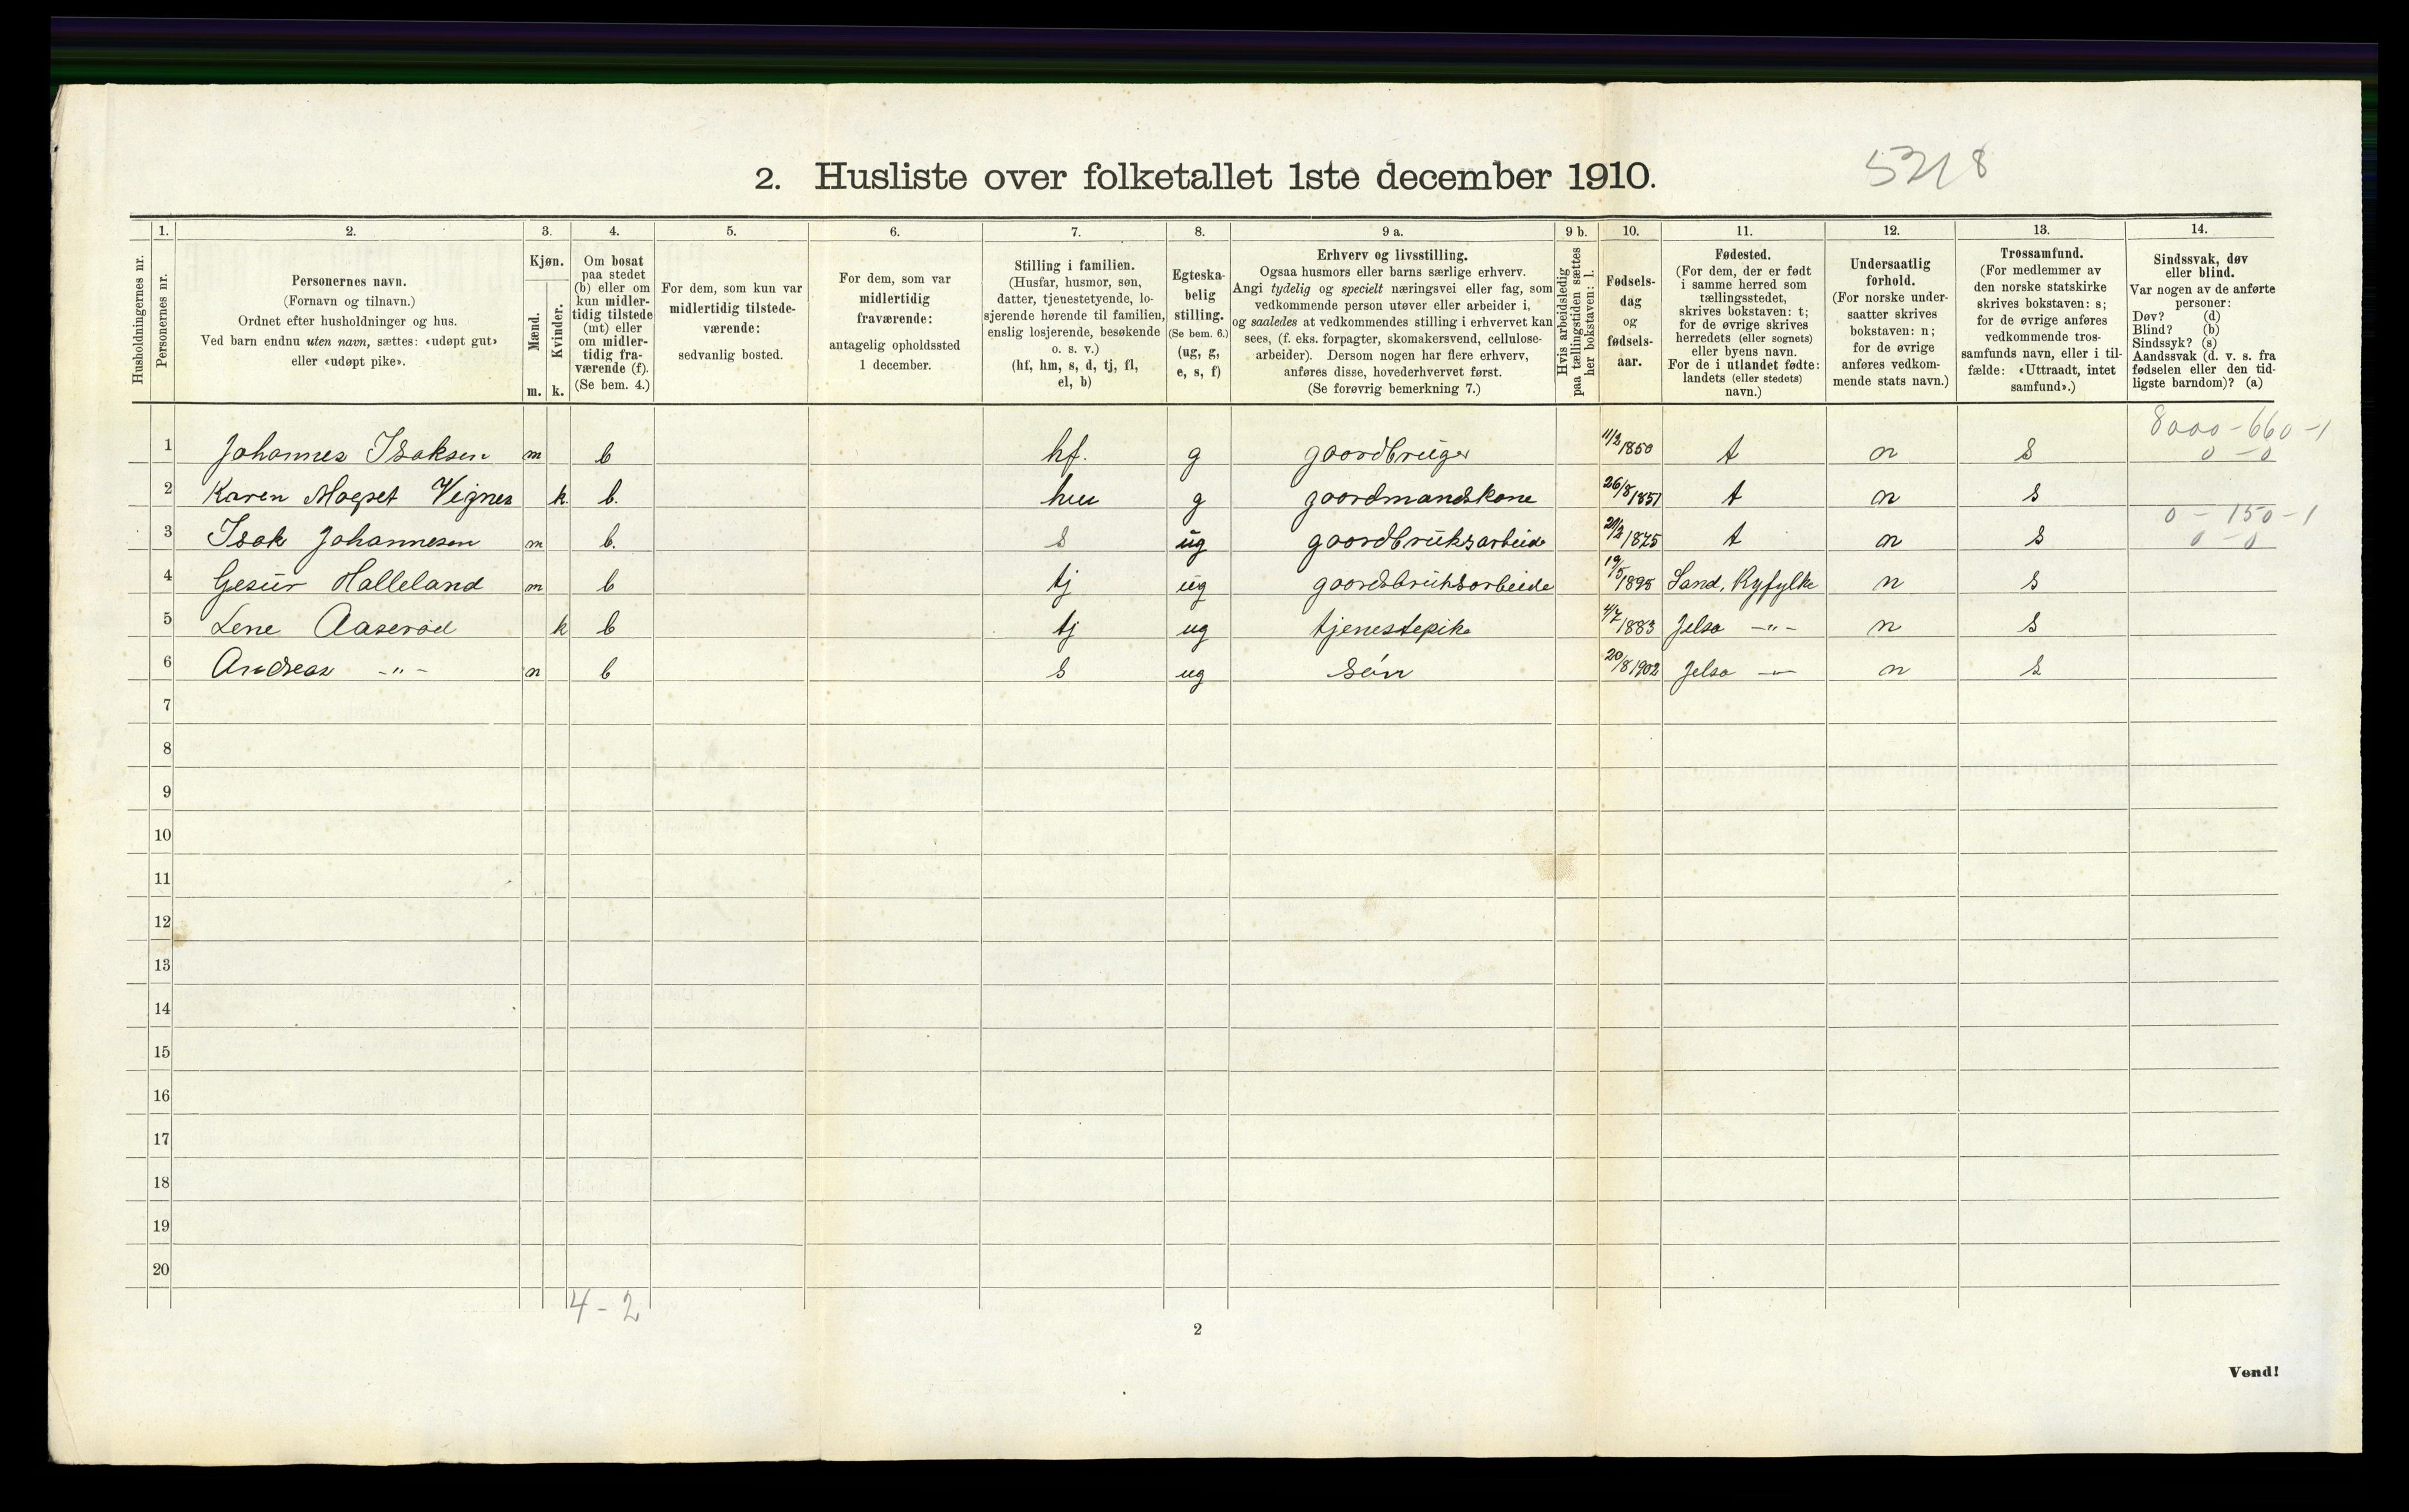 2. Husliste over folketallet 1ste december 1910.
5218
Husholdningernes nr.
1.
Personernes nr.
2.
Personernes navn.
(Fornavn og tilnavn.)
Ordnet efter husholdninger og hus.
Ved barn endnu uten navn, sættes: «udøpt gut»
eller «udøpt pike».
3.
Kjøn.
Mænd.
m.
Kvinder.
k.
4.
Om bosat
paa stedet
(b) eller om
kun midler-
tidig tilstede
(mt) eller
om midler-
tidig fra-
værende (f).
(Se bem. 4.)
5.
For dem, som kun var
midlertidig tilstede-
værende:
sedvanlig bosted.
6.
For dem, som var
midlertidig
fraværende:
antagelig opholdssted
1 december.
7.
Stilling i familien.
(Husfar, husmor, søn,
datter, tjenestetyende, lo-
sjerende hørende til familien,
enslig losjerende, besøkende
o. s. v.)
(hf, hm, s, d, tj, fl,
el, b)
8.
Egteska-
belig
stilling.
(Se bem. 6.)
(ug, g,
e, s, f)
9 a.
Erhverv og livsstilling.
Ogsaa husmors eller barns særlige erhverv.
Angi tydelig og specielt næringsvei eller fag, som
vedkommende person utøver eller arbeider i,
og saaledes at vedkommendes stilling i erhvervet kan
sees, (f. eks. forpagter, skomakersvend, cellulose-
arbeider). Dersom nogen har flere erhverv,
anføres disse, hovederhvervet først.
(Se forøvrig bemerkning 7.)
9 b.
Hvis arbeidsledig
paa tællingstiden sættes
her bokstaven: l.
10.
Fødsels-
dag
og
fødsels-
aar.
11.
Fødested.
(For dem, der er født
i samme herred som
tællingsstedet,
skrives bokstaven: t;
for de øvrige skrives
herredets (eller sognets)
eller byens navn.
For de i utlandet fødte:
landets (eller stedets)
navn.)
12.
Undersaatlig
forhold.
(For norske under-
saatter skrives
bokstaven: n;
for de øvrige
anføres vedkom-
mende stats navn.)
13.
Trossamfund.
(For medlemmer av
den norske statskirke
skrives bokstaven: s;
for de øvrige anføres
vedkommende tros-
samfunds navn, eller i til-
fælde: «Uttraadt, intet
samfund».)
14.
Sindssvak, døv
eller blind.
Var nogen av de anførte
personer:
Døv? (d)
Blind? (b)
Sindssyk? (s)
Aandssvak (d. v. s. fra
fødselen eller den tid-
ligste barndom)? (a)
8000-660-1
1 Johannes Isaksen m b hf. g gaardbruger 11/2 1850 t n s 0-0
2 Karen Magret Vignes k. b. hm g gaardmandskone 26/8 1851 t n s
0-150-1
3 Isak Johannesen m b. s ug gaardbruksarbeide 21/2 1875 t n s 0-0
4 Gesur Halleland m b tj ug gaardsbruksarbeide 19/5 1895 Sand, Ryfylke n s
5 Lene Aaserød k b tj ug tjenestepike 4/7 1883 Jelsa -"- n s
6 Andreas -"- m b s ug søn 20/8 1902 Jelsa -"- n s
7
8
9
10
11
12
13
14
15
16
17
18
19
20
4-2
2
Vend!